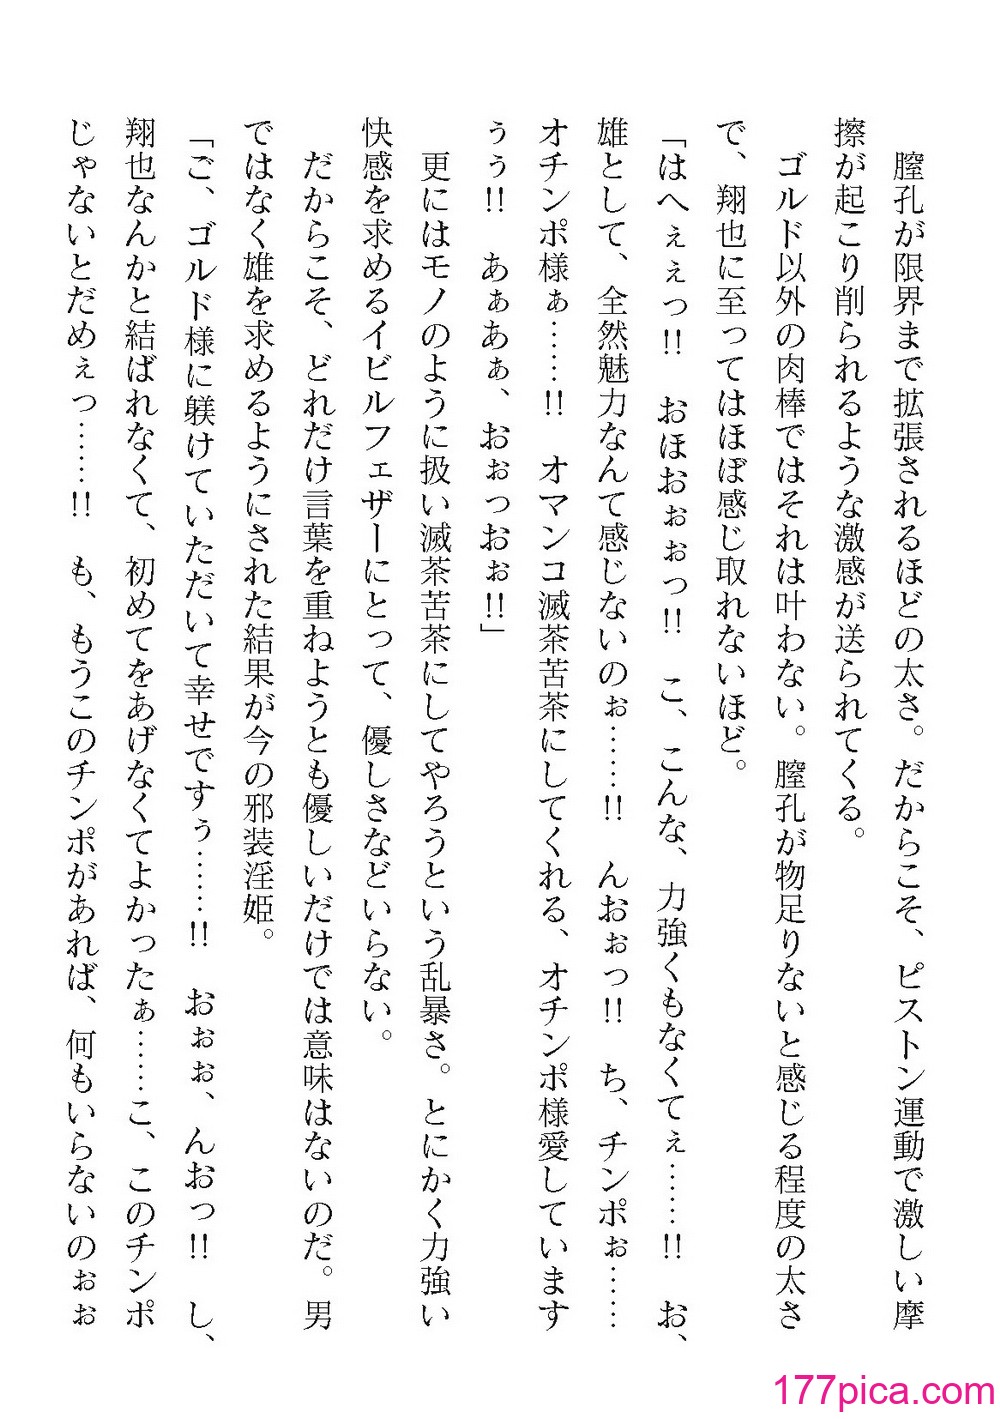 膣孔が限界まで拡張されるほどの太さ。だからこそ、ピストン運動で激しい摩
擦が起こり削られるような激感が送られてくる。
　ゴルド以外の肉棒ではそれは叶わない。膣孔が物足りないと感じる程度の太さ
で、翔也に至ってはほぼ感じ取れないほど。
「はへぇぇっ!!　おほおぉぉっ!!　こ、こんな、力強くもなくてぇ……!!　お、
雄として、全然魅力なんて感じないのぉ……!!　んおぉっ!!　ち、チンポぉ……
オチンポ様ぁ……!!　オマンコ滅茶苦茶にしてくれる、オチンポ様愛しています
ぅぅ!!　あぁあぁ、おぉっおぉ!!」
　更にはモノのように扱い滅茶苦茶にしてやろうという乱暴さ。とにかく力強い
快感を求めるイビルフェザーにとって、優しさなどいらない。
　だからこそ、どれだけ言葉を重ねようとも優しいだけでは意味はないのだ。男
ではなく雄を求めるようにされた結果が今の邪装淫姫。
「ご、ゴルド様に躾けていただいて幸せですぅ……!!　おぉぉ、んおっ!!　し、
翔也なんかと結ばれなくて、初めてをあげなくてよかったぁ……こ、このチンポ
じゃないとだめぇっ……!!　も、もうこのチンポがあれば、何もいらないのぉぉ
177pica.com